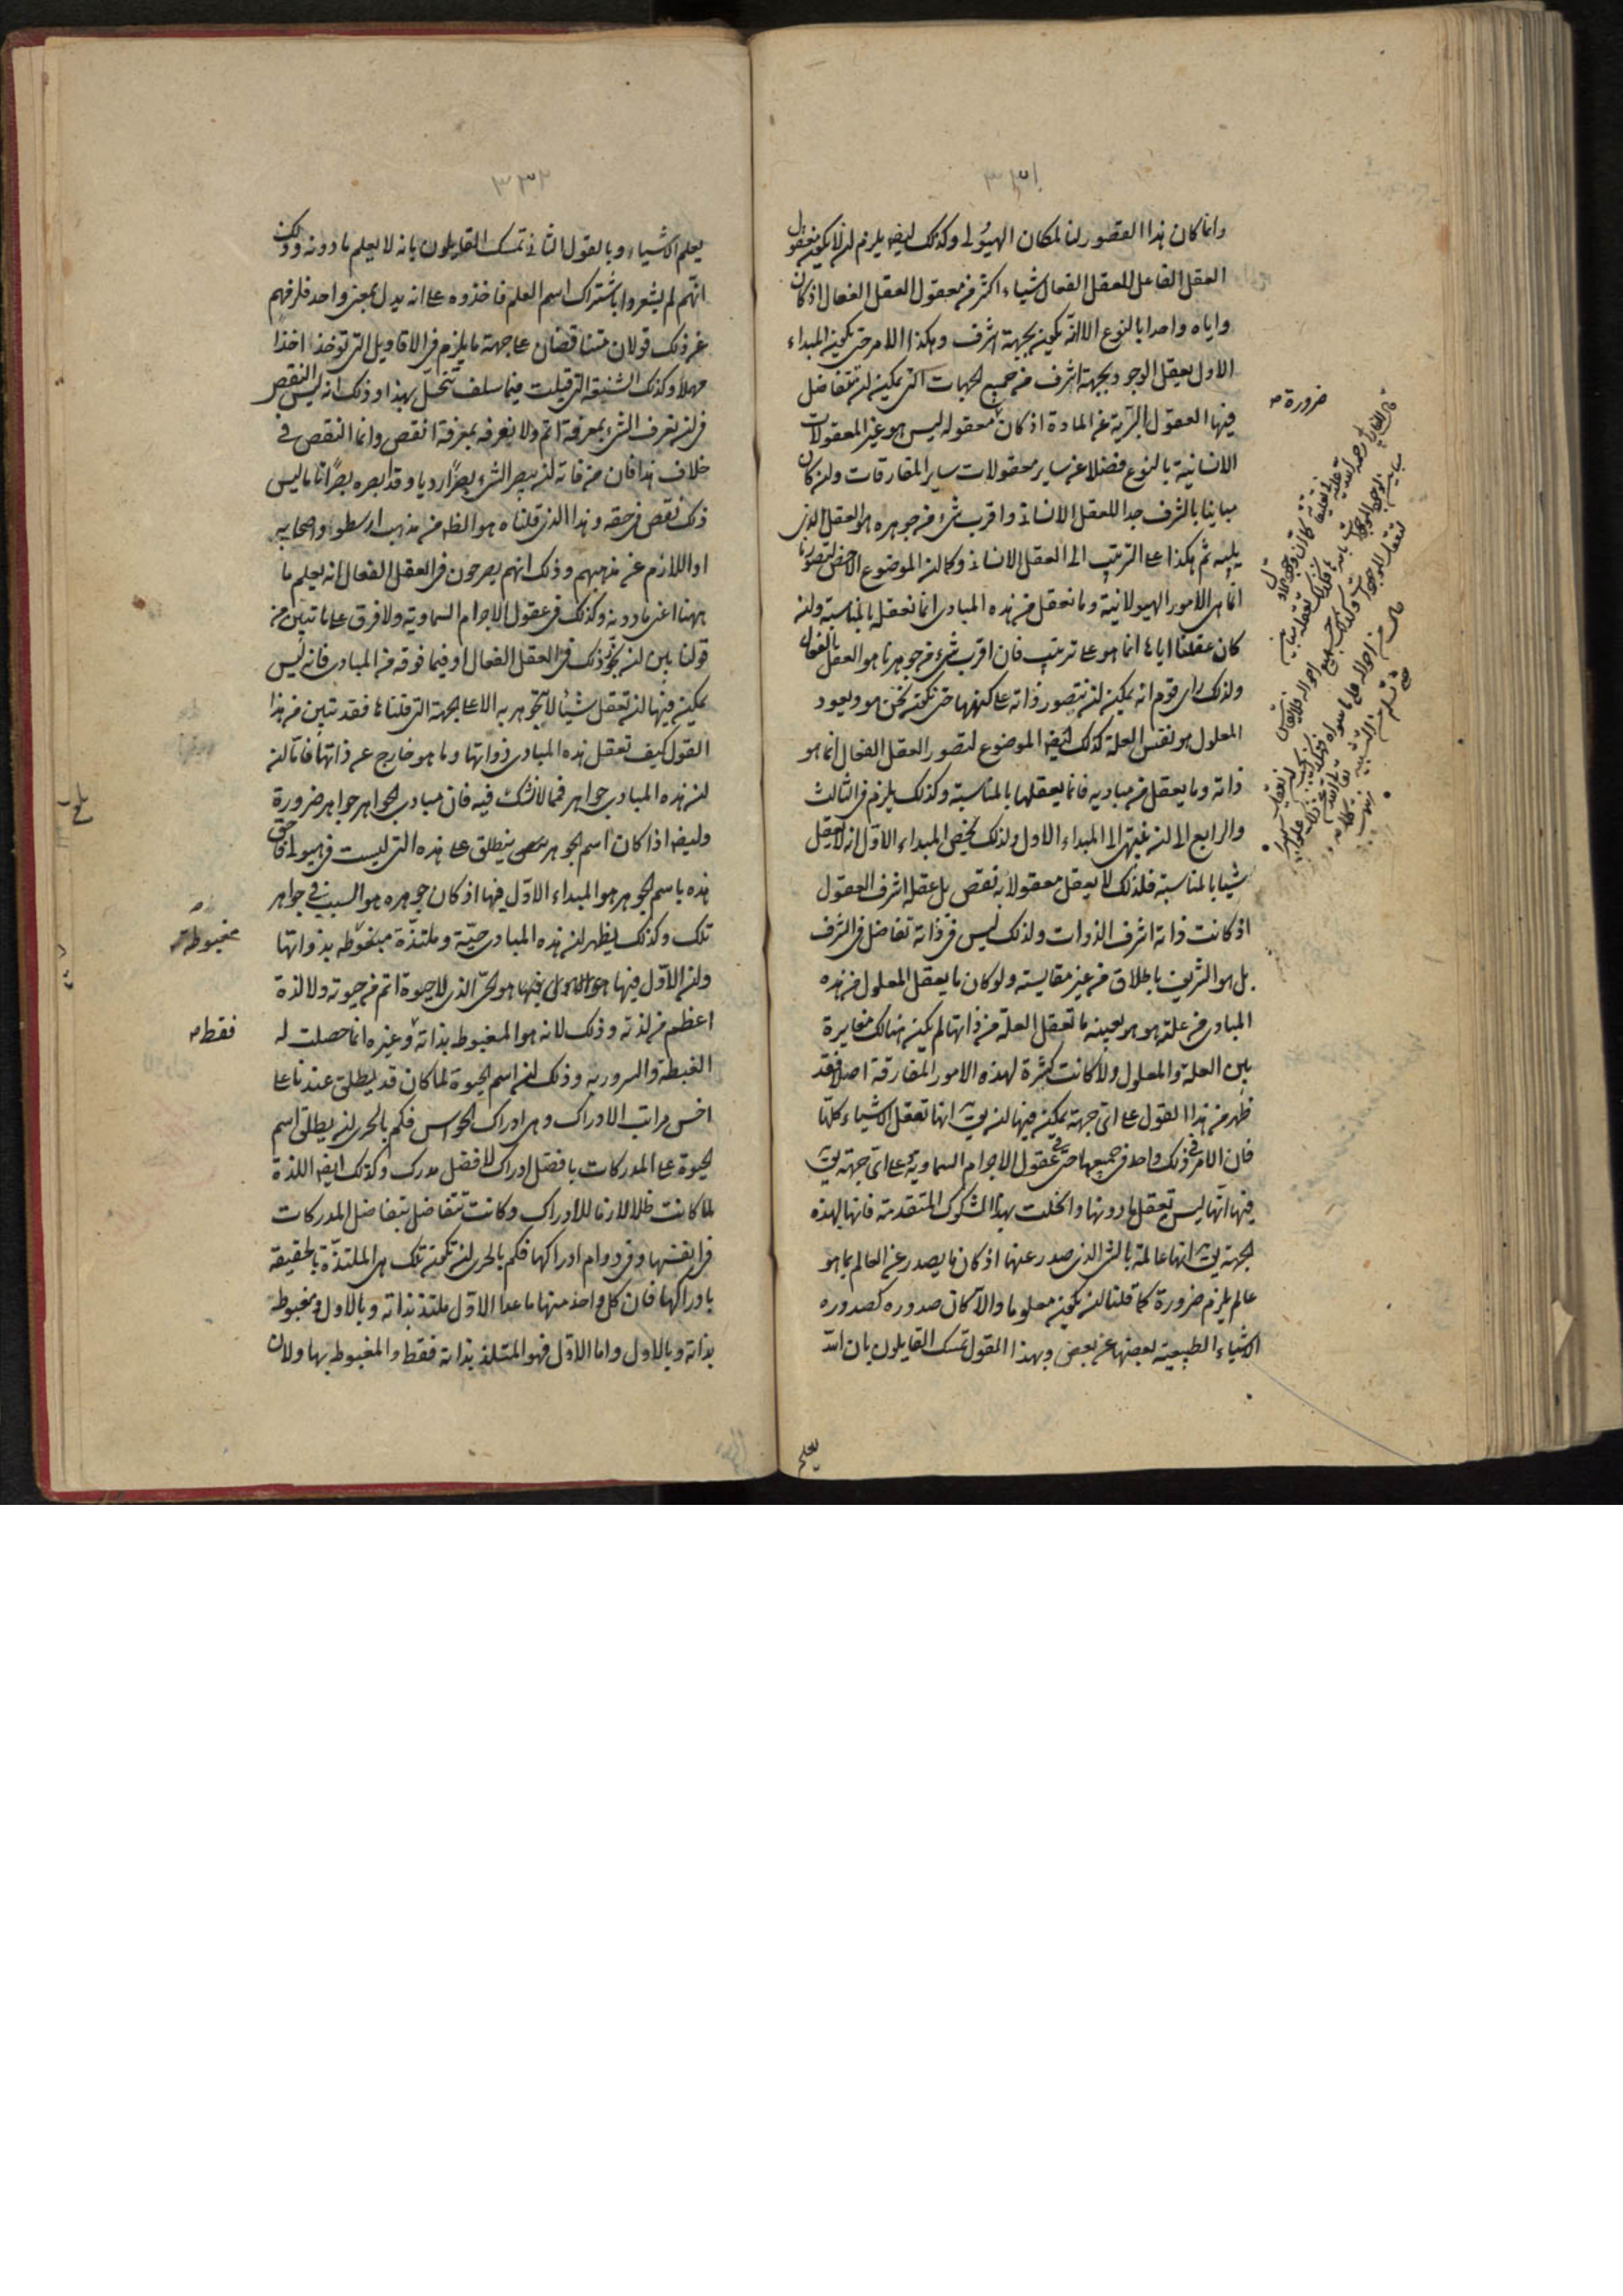 ٣٣١
وانما كان هذا القصور لنا لمكان الهيولى وكذلك ايضا يلزم ان لا يكون معقول
العقل الفاعل للعقل الفعال شياء اكثر من معقول العقل الفعال اذ كان
واياه واحدا بالنوع الا انه يكون بجهة اشرف وهكذا الامر حتى يكون المبداء
الاول يعقل الوجود بجهة اشرف من جميع الجهات التى يمكن ان تتفاضل
فيها العقول البرية عن المادة اذ كان معقوله ليس هو غير المعقولات
ضرورة صح
الانسانية بالنوع فضلا عن ساير معقولات ساير المفارقات وان كان
مباينا بالشرف جدا للعقل الانسانى واقرب شئ من جوهره هو العقل الذى
يليه ثم هكذا على الترتيب الى العقل الانسانى وكما ان الموضوع الاخص لتصورنا
انما هى الامور الهيولانية وما نعقل من هذه المبادى انما نعقل بالمناسبة وان
كان عقلنا اياها انما هو على ترتيب فان اقرب شئ من جوهرنا هو العقل الفعال
ولذلك راى قوم انه يمكن ان نتصور ذاته على كنهها حتى نكون نحن هو ويعود
المعلول هو نفس العلة كذلك ايضا الموضوع لتصور العقل الفعال انما هو
ذاته وما يعقل من مباديه فانما يعقلها بالمناسبة وكذلك يلزم فى الثالث
والرابع الى ان ننتهى الى المبداء الاول ولذلك يخص المبداء الاول انه لا يعقل
شيا بالمناسبة فلذلك لا يعقل معقولا به نقص بل عقله اشرف العقول
اذ كانت ذاته اشرف الذوات ولذلك ليس فى ذاته تفاضل فى الشرف
بل هو الشريف باطلاق من غير مقايسته ولو كان ما يعقل المعلول من هذه
المبادى من علته هو هو بعينه ما تعقل العلة من ذاتها لم يكن هنالك مغايرة
بين العلة والمعلول ولا كانت كثرة لهذه الامور المفارقة اصلا فقد
ظهر من هذا القول على اى جهة يمكن فيها ان يق انها تعقل الاشياء كلها
فان الامر فى ذلك واحد فى جميعها حتى فى عقول الاجرام السماوية وعلى اى جهة يق
فيها انها ليس تعقل ما دونها وانحلت بهذا الشكوك المتقدمة فانها بهذه
الجهة يق انها عالمة بالشئ الذى صدر عنها اذ كان ما يصدر عن العالم بما هو
عالم يلزم ضرورة كما قلنا ان يكون معلوما والا كان صدوره كصدور
الاشياء الطبيعية بعضها عن بعض وبهذا القول تمسك القايلون بان الله
يعلم
٣٣٢
يعلم الاشياء وبالقول الثانى تمسك القايلون بانه لا يعلم ما دونه وذلك
انهم لم يشعروا باشتراك اسم العلم فاخذوه على انه يدل بمعنى واحد فلزمهم
عن ذلك قولان متناقضان على جهة ما يلزم فى الاقاويل التى توخذ اخذا
مهملا وكذلك الشنيعة التى قيلت فيما سلف تنحل بهذا وذلك انه ليس النقص
فى ان نعرف الشئ بمعرفة اتم ولا نعرفه بمعرفة انقص وانما النقص فى
خلاف هذا فان من فاته ان يبصر الشئ بصرا رديا وقد ابصره بصرا تاما ليس
ذلك نقص فى حقه وهذا الذى قلناه هو الظ من مذهب ارسطو واصحابه
او اللازم عن مذهبهم وذلك انهم يصرحون فى العقل الفعال انه يعلم ما
ههنا اعنى ما دونه وكذلك فى عقول الاجرام السماوية ولا فرق على ما تبين من
قولنا بين ان نجوز ذلك فى العقل الفعال او فيما فوقه من المبادى فانه ليس
يمكن فيها ان تعقل شيئا لا تتجوهر به الا على الجهة التى قلناها فقد تبين من هذا
القول كيف تعقل هذه المبادى ذواتها وما هو خارج عن ذاتها فاما ان
ان هذه المبادى جواهر فما لا نشك فيه فان مبادى الجواهر جواهر ضرورة
وايضا اذا كان اسم الجوهر ينطلق على هذه التى ليست فى هيولى فاحق
هذه باسم الجوهر هو المبداء الاول فيها اذ كان جوهره هو السبب فى جواهر
تلك وكذلك يظهر ان هذه المبادى حية وملتذة مغبوطة بذواتها
مغبوطة صح
وان الاول فيها هو الحى الذى لا حيوة اتم من حيوته ولا لذة
اعظم من لذته وذلك لانه هو المغبوط بذاته وغيره انما حصلت له
فقط صح
الغبطة والسرور به وذلك ان اسم الحيوة لما كان قد يطلق عندنا على
اخس مراتب الادراك وهى ادراك الحواس فكم بالحرى ان يطلق اسم
الحيوة على المدركات بافضل ادراك لافضل مدرك وكذلك ايضا اللذة
لما كانت ظلا لازما للادراك وكانت تتفاضل بتفاضل المدركات
فى انفسها وفى دوام ادراكها فكم بالحرى ان تكون تلك هى الملتذة بالحقيقة
بادراكها فان كل واحد منها ما عدا الاول ملتذ بذاته وبالاول ومغبوط
بذاته وبالاول واما الاول فهو الملتذ بذاته فقط والمغبوط بها ولان